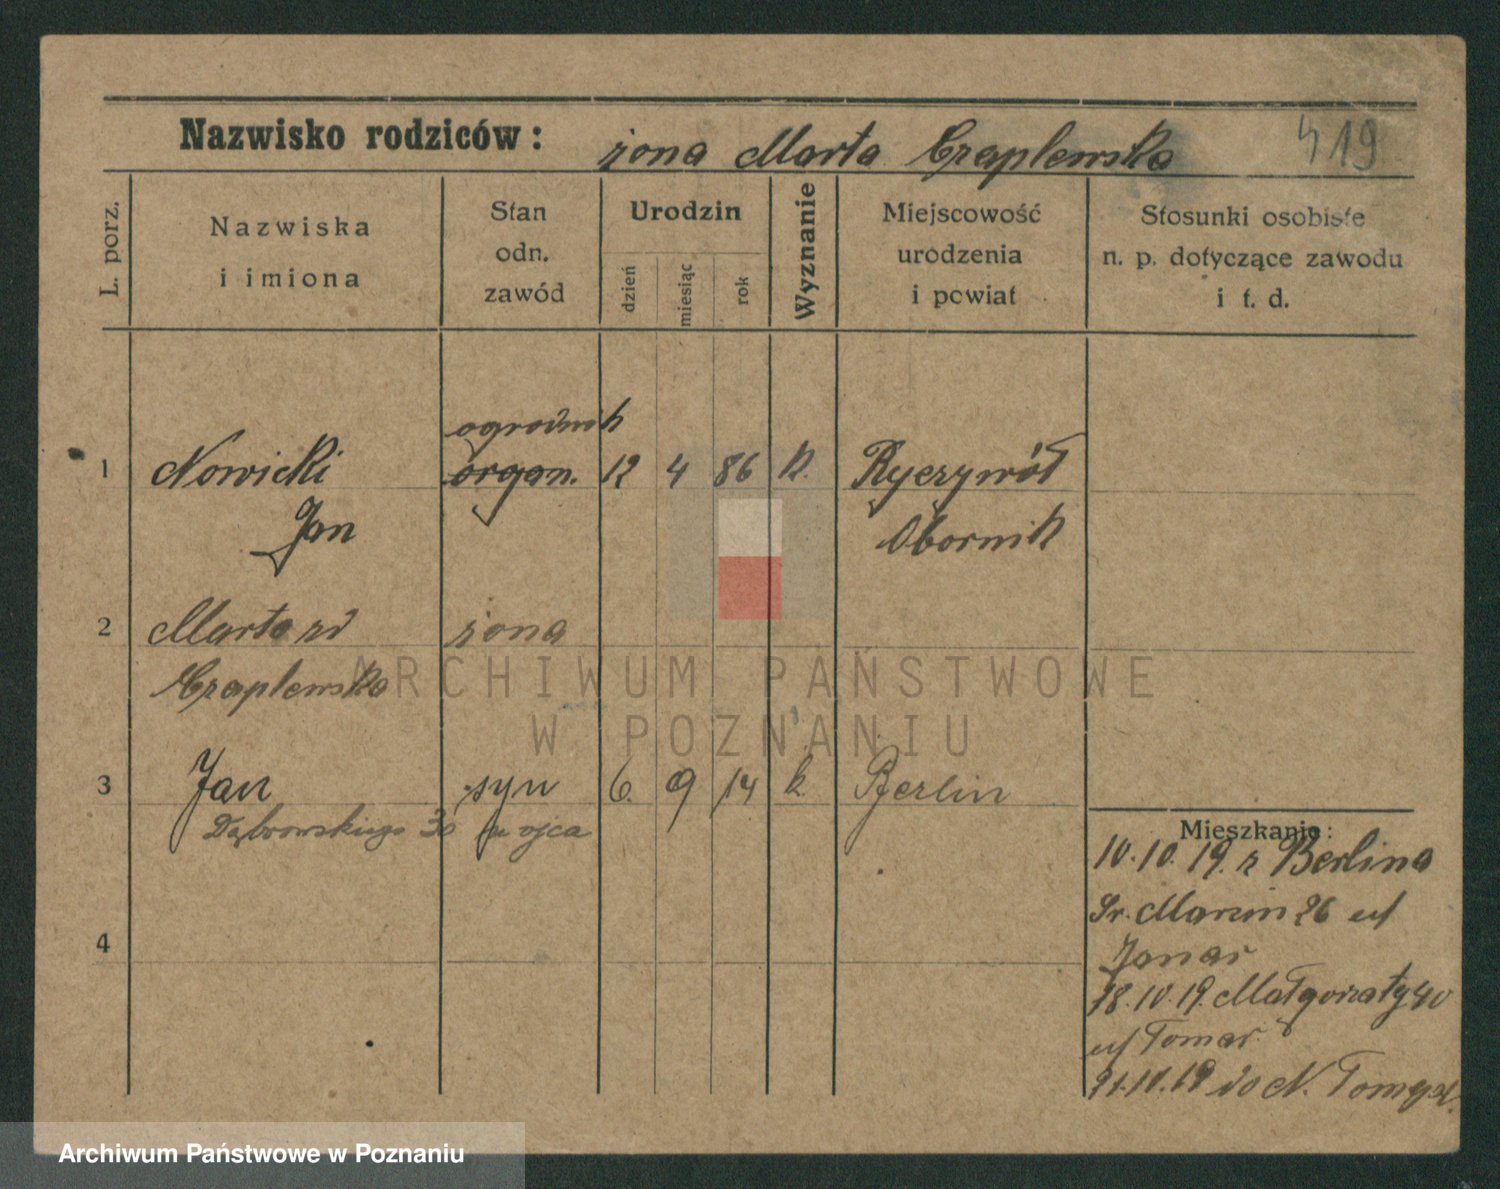 Nazwisko rodziców: żona Marta Czaplewska 419
L. porz.
Nazwiska
i imiona
Stan
odn.
zawód
Urodzin
dzień
miesiąc
rok
Wyznanie
Miejscowość
urodzenia
i powiat
Stosunki osobiste
n. p. dotyczące zawodu
i t. d.
ogrodnik
1 Nowicki organ. 12 4 86 k. Ryczywół
Jan Obornik
2 Marta zd żona
Czaplewska
ARCHIWUM PAŃSTWOWE
W POZNANIU
3 Jan syn 6. 9 14 k. Berlin
Dąbrowskiego 30 u ojca
4
Mieszkanie:
10.10.19. z Berlina
Św. Marcin 26 u/
18.10.19. Małgorzaty 40
u/ Tomar
21.10.19 do N. Tomyśl.
Archiwum Państwowe w Poznaniu